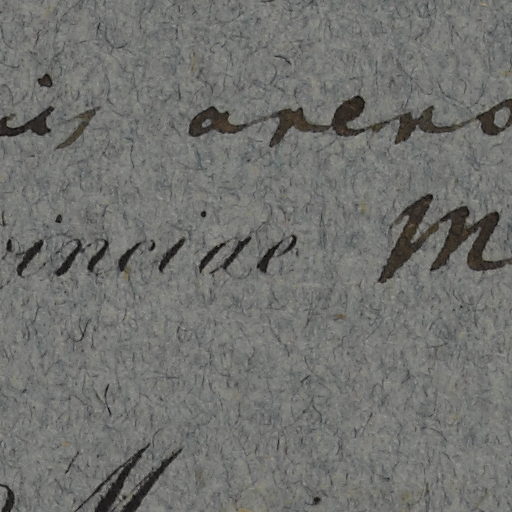 is, areno
vinciae M
M